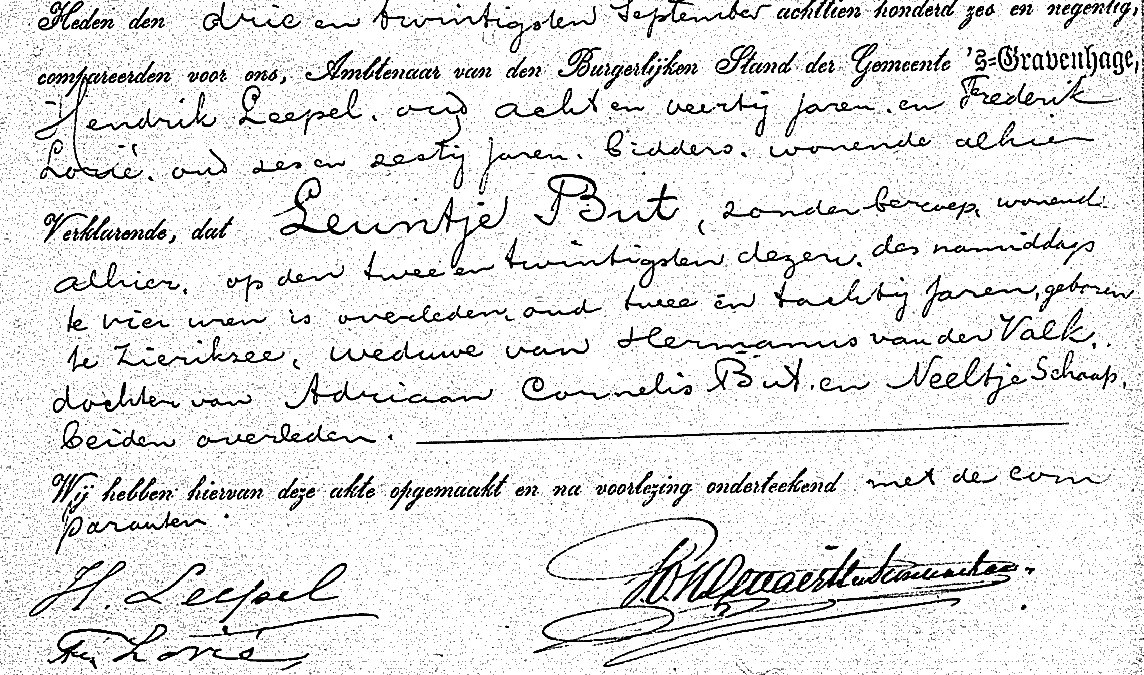 Heden den drie en twintigsten September achttien honderd zes en negentig,
compareerden voor ons, Ambtenaar van den Burgerlijken Stand der Gemeente 's=Gravenhage,
Hendrik Leepel, oud acht en veertig jaren, en Frederik
Lovié, oud zes en zestig jaren, bidders, wonende alhier
Verklarende, dat Leuntje But, zonder beroep, wonend
alhier, op den twee en twintigsten dezer, des namiddags
te vier uren is overleden, oud twee en tachtig jaren, geboren
te Zieriksee, weduwe van Hermanus van der Valk,
dochter van Adriaan Cornelis But, en Neeltje Schaap,
beiden overleden.
Wij hebben hiervan deze akte opgemaakt en na voorlezing onderteekend met de com
paranten.
H. Leepel
Fr. Lovié